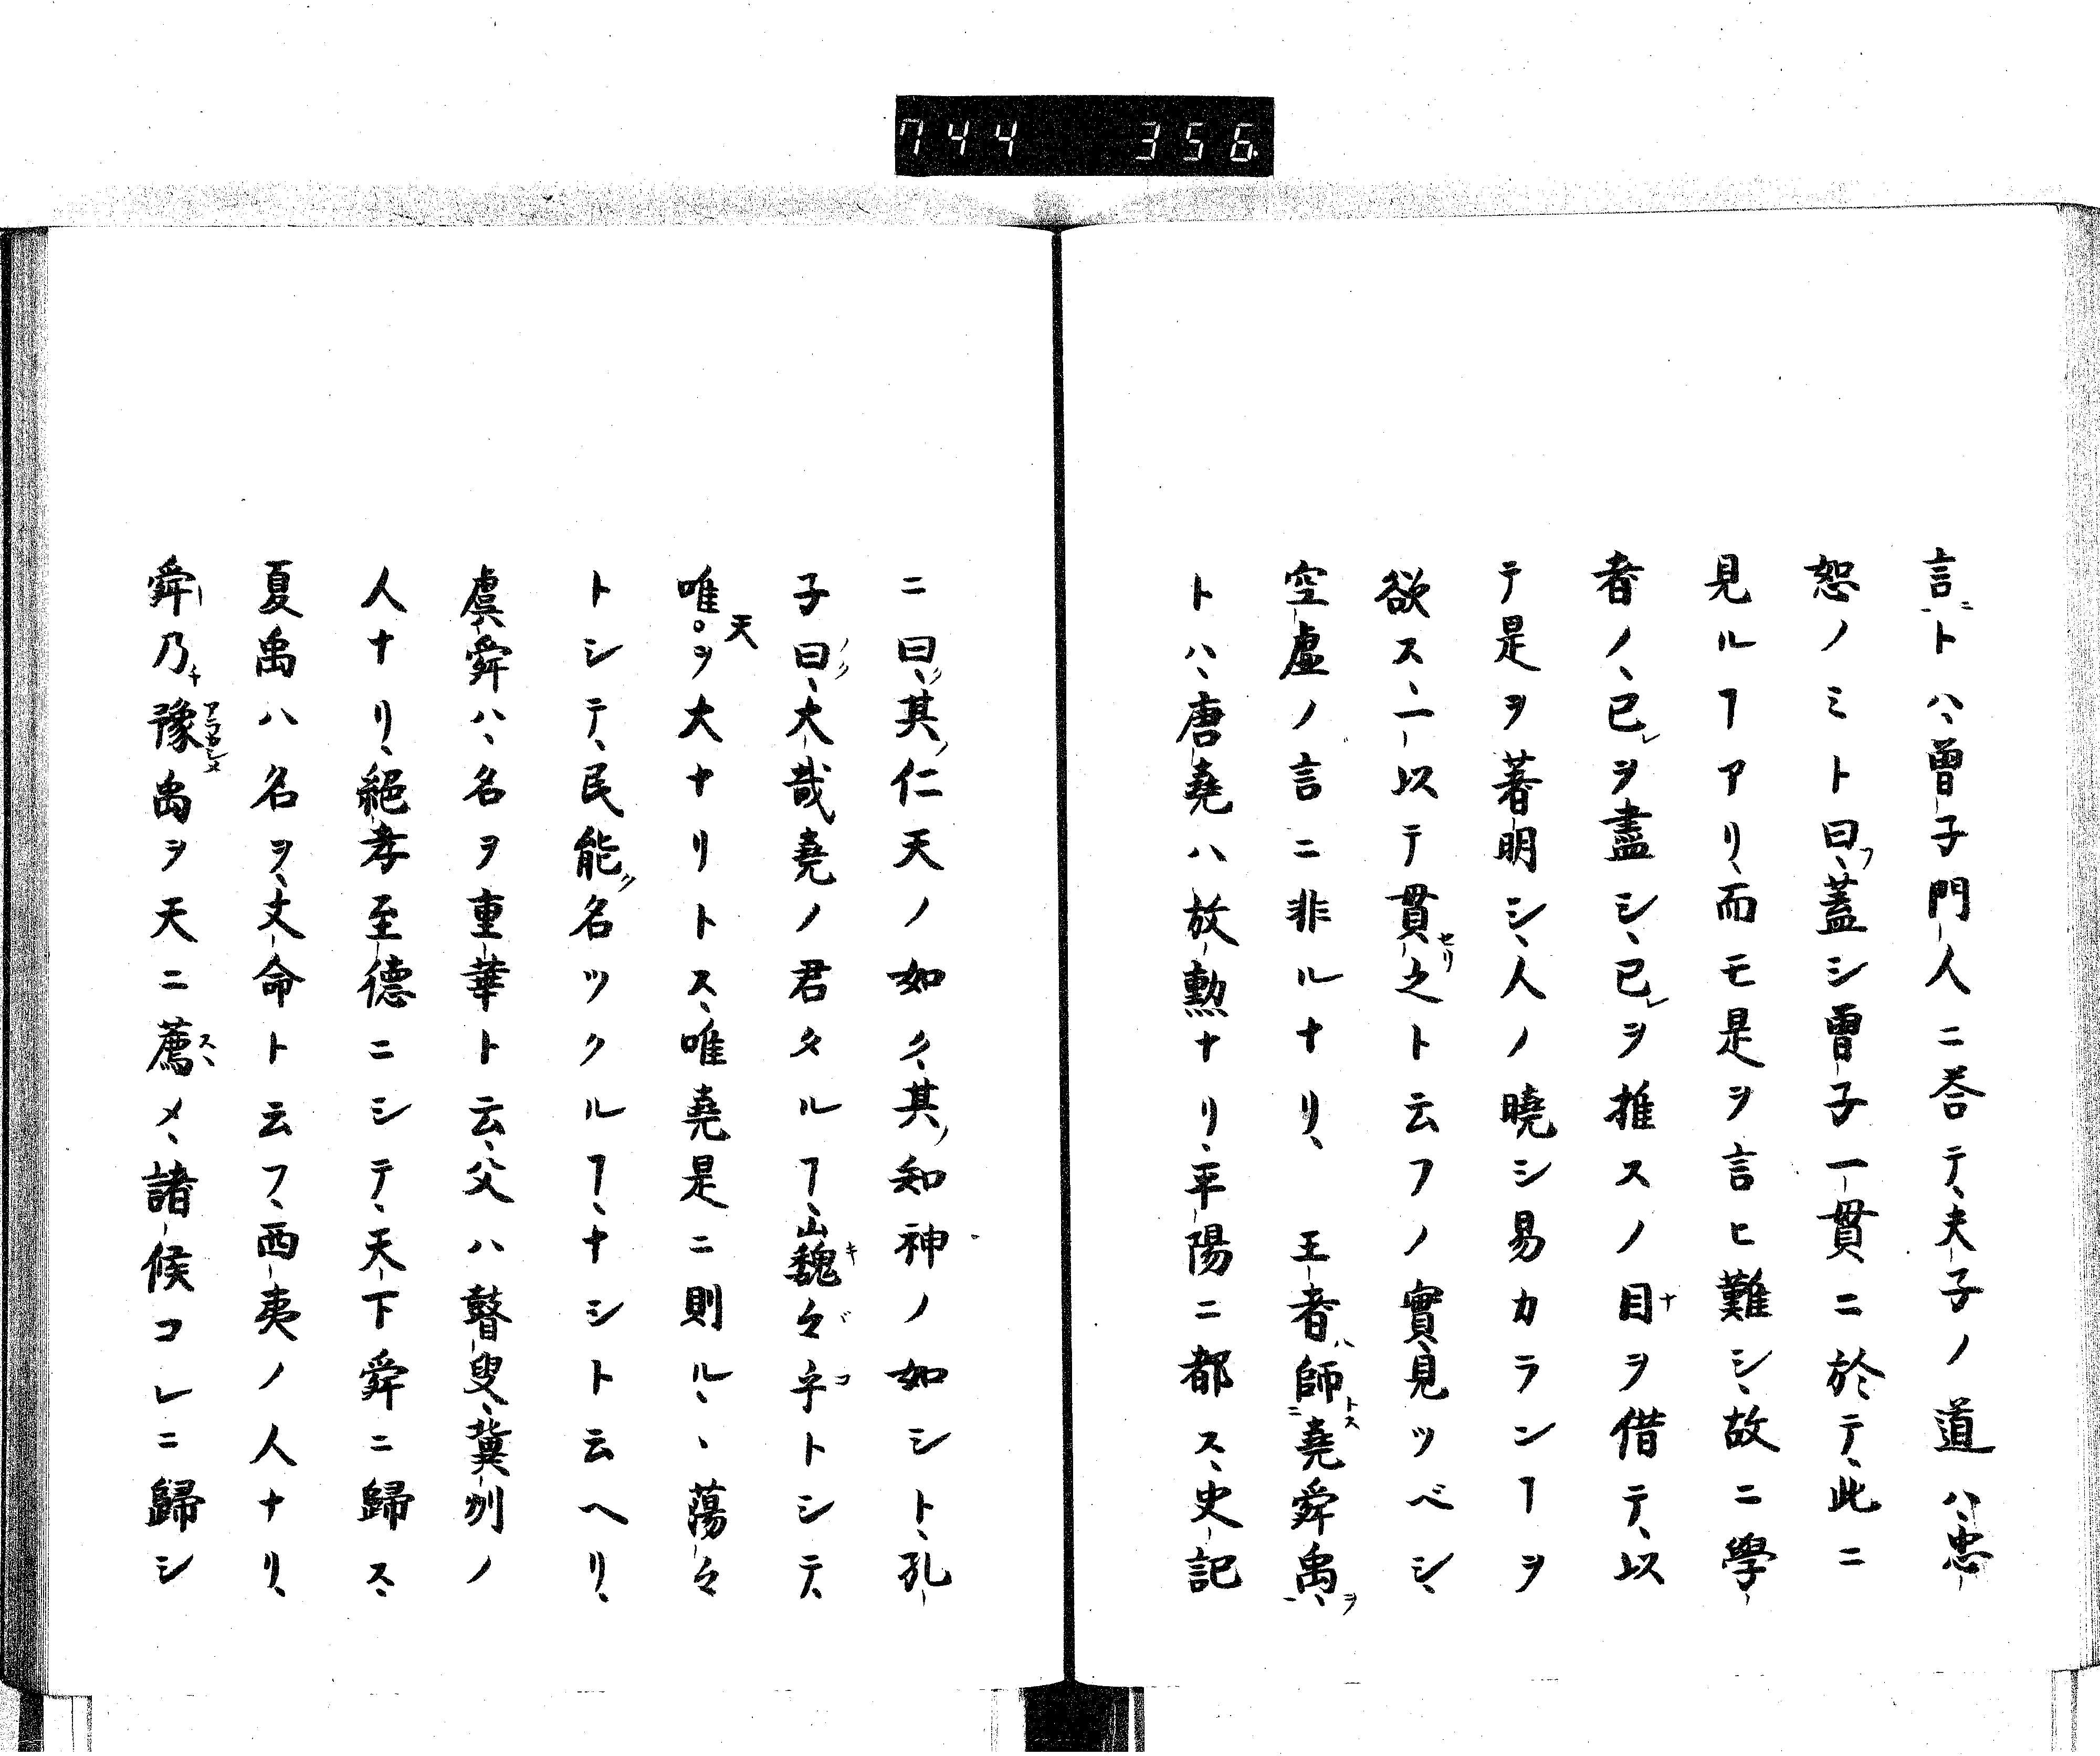 744 356
言ニトハ、曽子門人ニ荅テ、夫子ノ道ハ、忠
恕ノミト曰フ、蓋シ曽子一貫ニ於テ、此ニ
見ルヿアリ、而モ是ヲ言ヒ難シ、故ニ學
者ノ、已レヲ盡シ、已レヲ推スノ目ナヲ借テ、以
テ是ヲ著明シ、人ノ曉シ易カランヿヲ
欲ス、一以テ貫セリ之ト云フノ實見ツベシ、
空虚ノ言ニ非ルナリ、 王者ハ師トスニ堯舜禹ヲ、
トハ、唐堯ハ放勲ナリ、平陽ニ都ス、史記
ニ曰ク、其ノ仁天ノ如ク、其ノ知神ノ如シト、孔
子ノ曰ク、大哉堯ノ君タルヿ、巍キ々ギ乎コトシテ、
唯天ヲ大ナリトス、唯堯是ニ則ル、、蕩々
トシテ、民能ク名ツクルヿ、ナシト云ヘリ、
虞舜ハ、名ヲ重華ト云、父ハ瞽叟、冀州ノ
人ナリ、絕孝至德ニシテ、天下舜ニ歸ス、
夏禹ハ名ヲ、文命ト云フ、西夷ノ人ナリ、
舜乃チ豫アラカシメ禹ヲ天ニ薦スヽメ、諸候コレニ歸シ